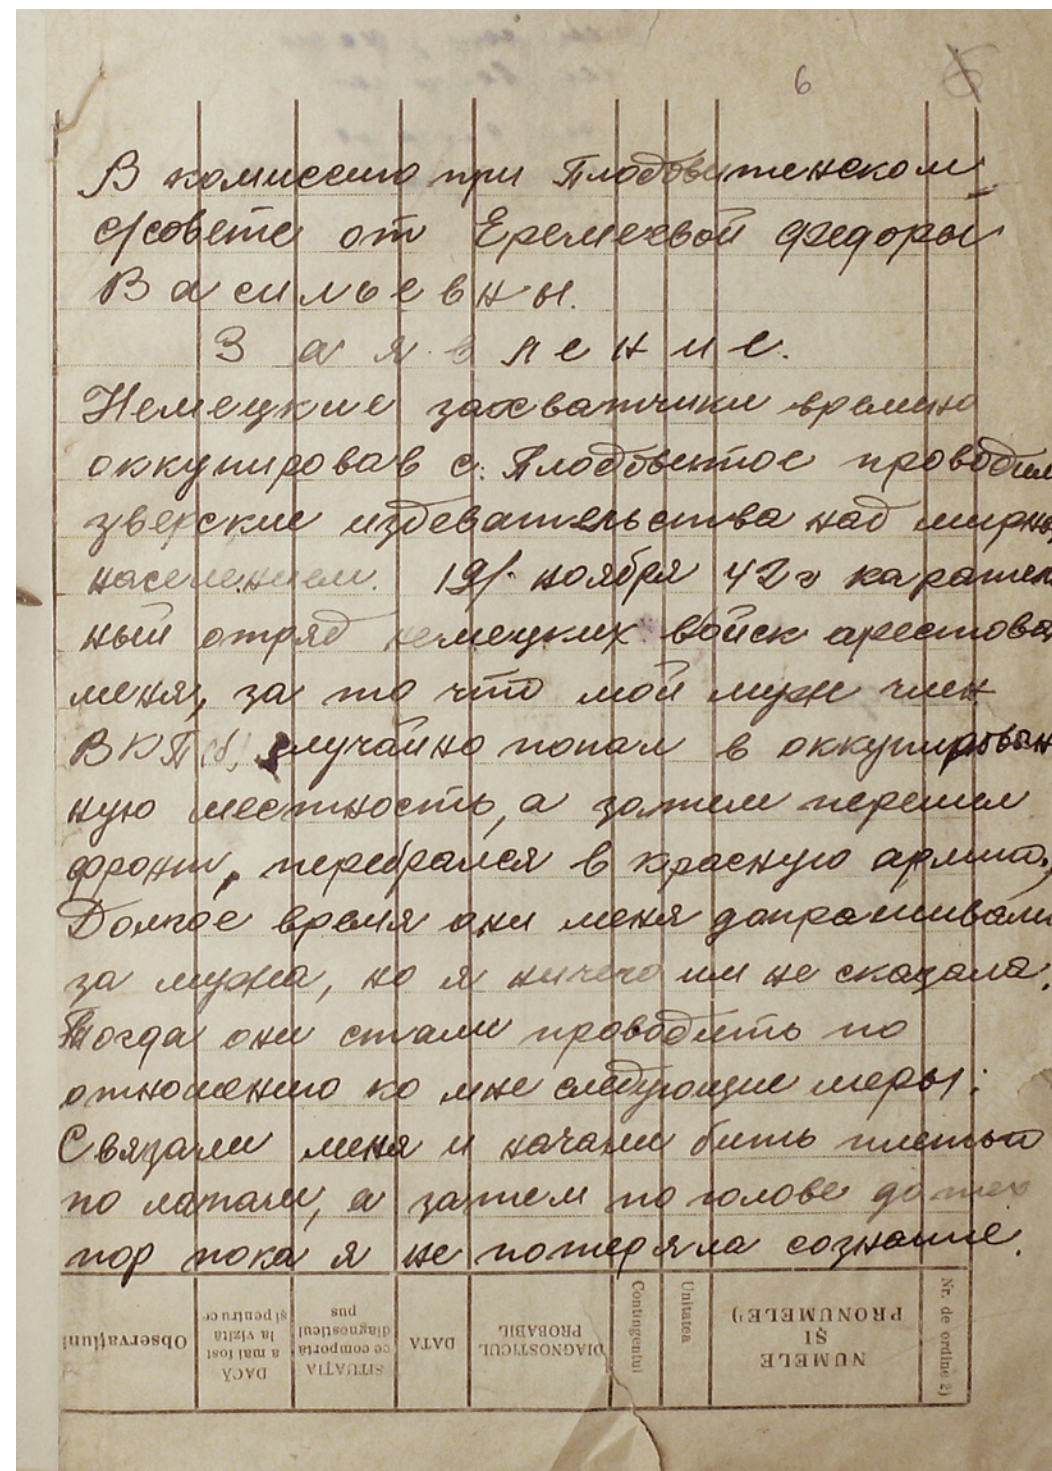 6
В комиссию при Плодовитенском
с/совете от Еремеевой Федоры
Васильевны.
Заявление.
Немецкие захватчики времено
оккупировав с. Плодовитое проводил
зверские издевательства над мирны
населением. 19/. ноября 42 г каратель
ный отряд немецких войск арестова
меня, за то что мой муж член
ВКП(б) случайно попал в оккупирован
ную местность, а затем перешел
фронт, перебрался в красную армию.
Долгое время они меня допрашивали
за мужа, но я ничего им не сказала.
Тогда они стали проводить по
отношению ко мне следующие меры:
Связали меня и начали бить плетью
по лапам, а затем по голове до тех
пор пока я не потеряла сознание.
Nr. de ordine 2)
NUMELE ȘI PRONUMELE¹)
Unitatea
Contingentul
DIAGNOSTICUL PROBABIL
DATA
SITUAȚIA ce comportă diagnosticul pus
DACĂ a mai fost la vizită și pentru ce
Observațiuni